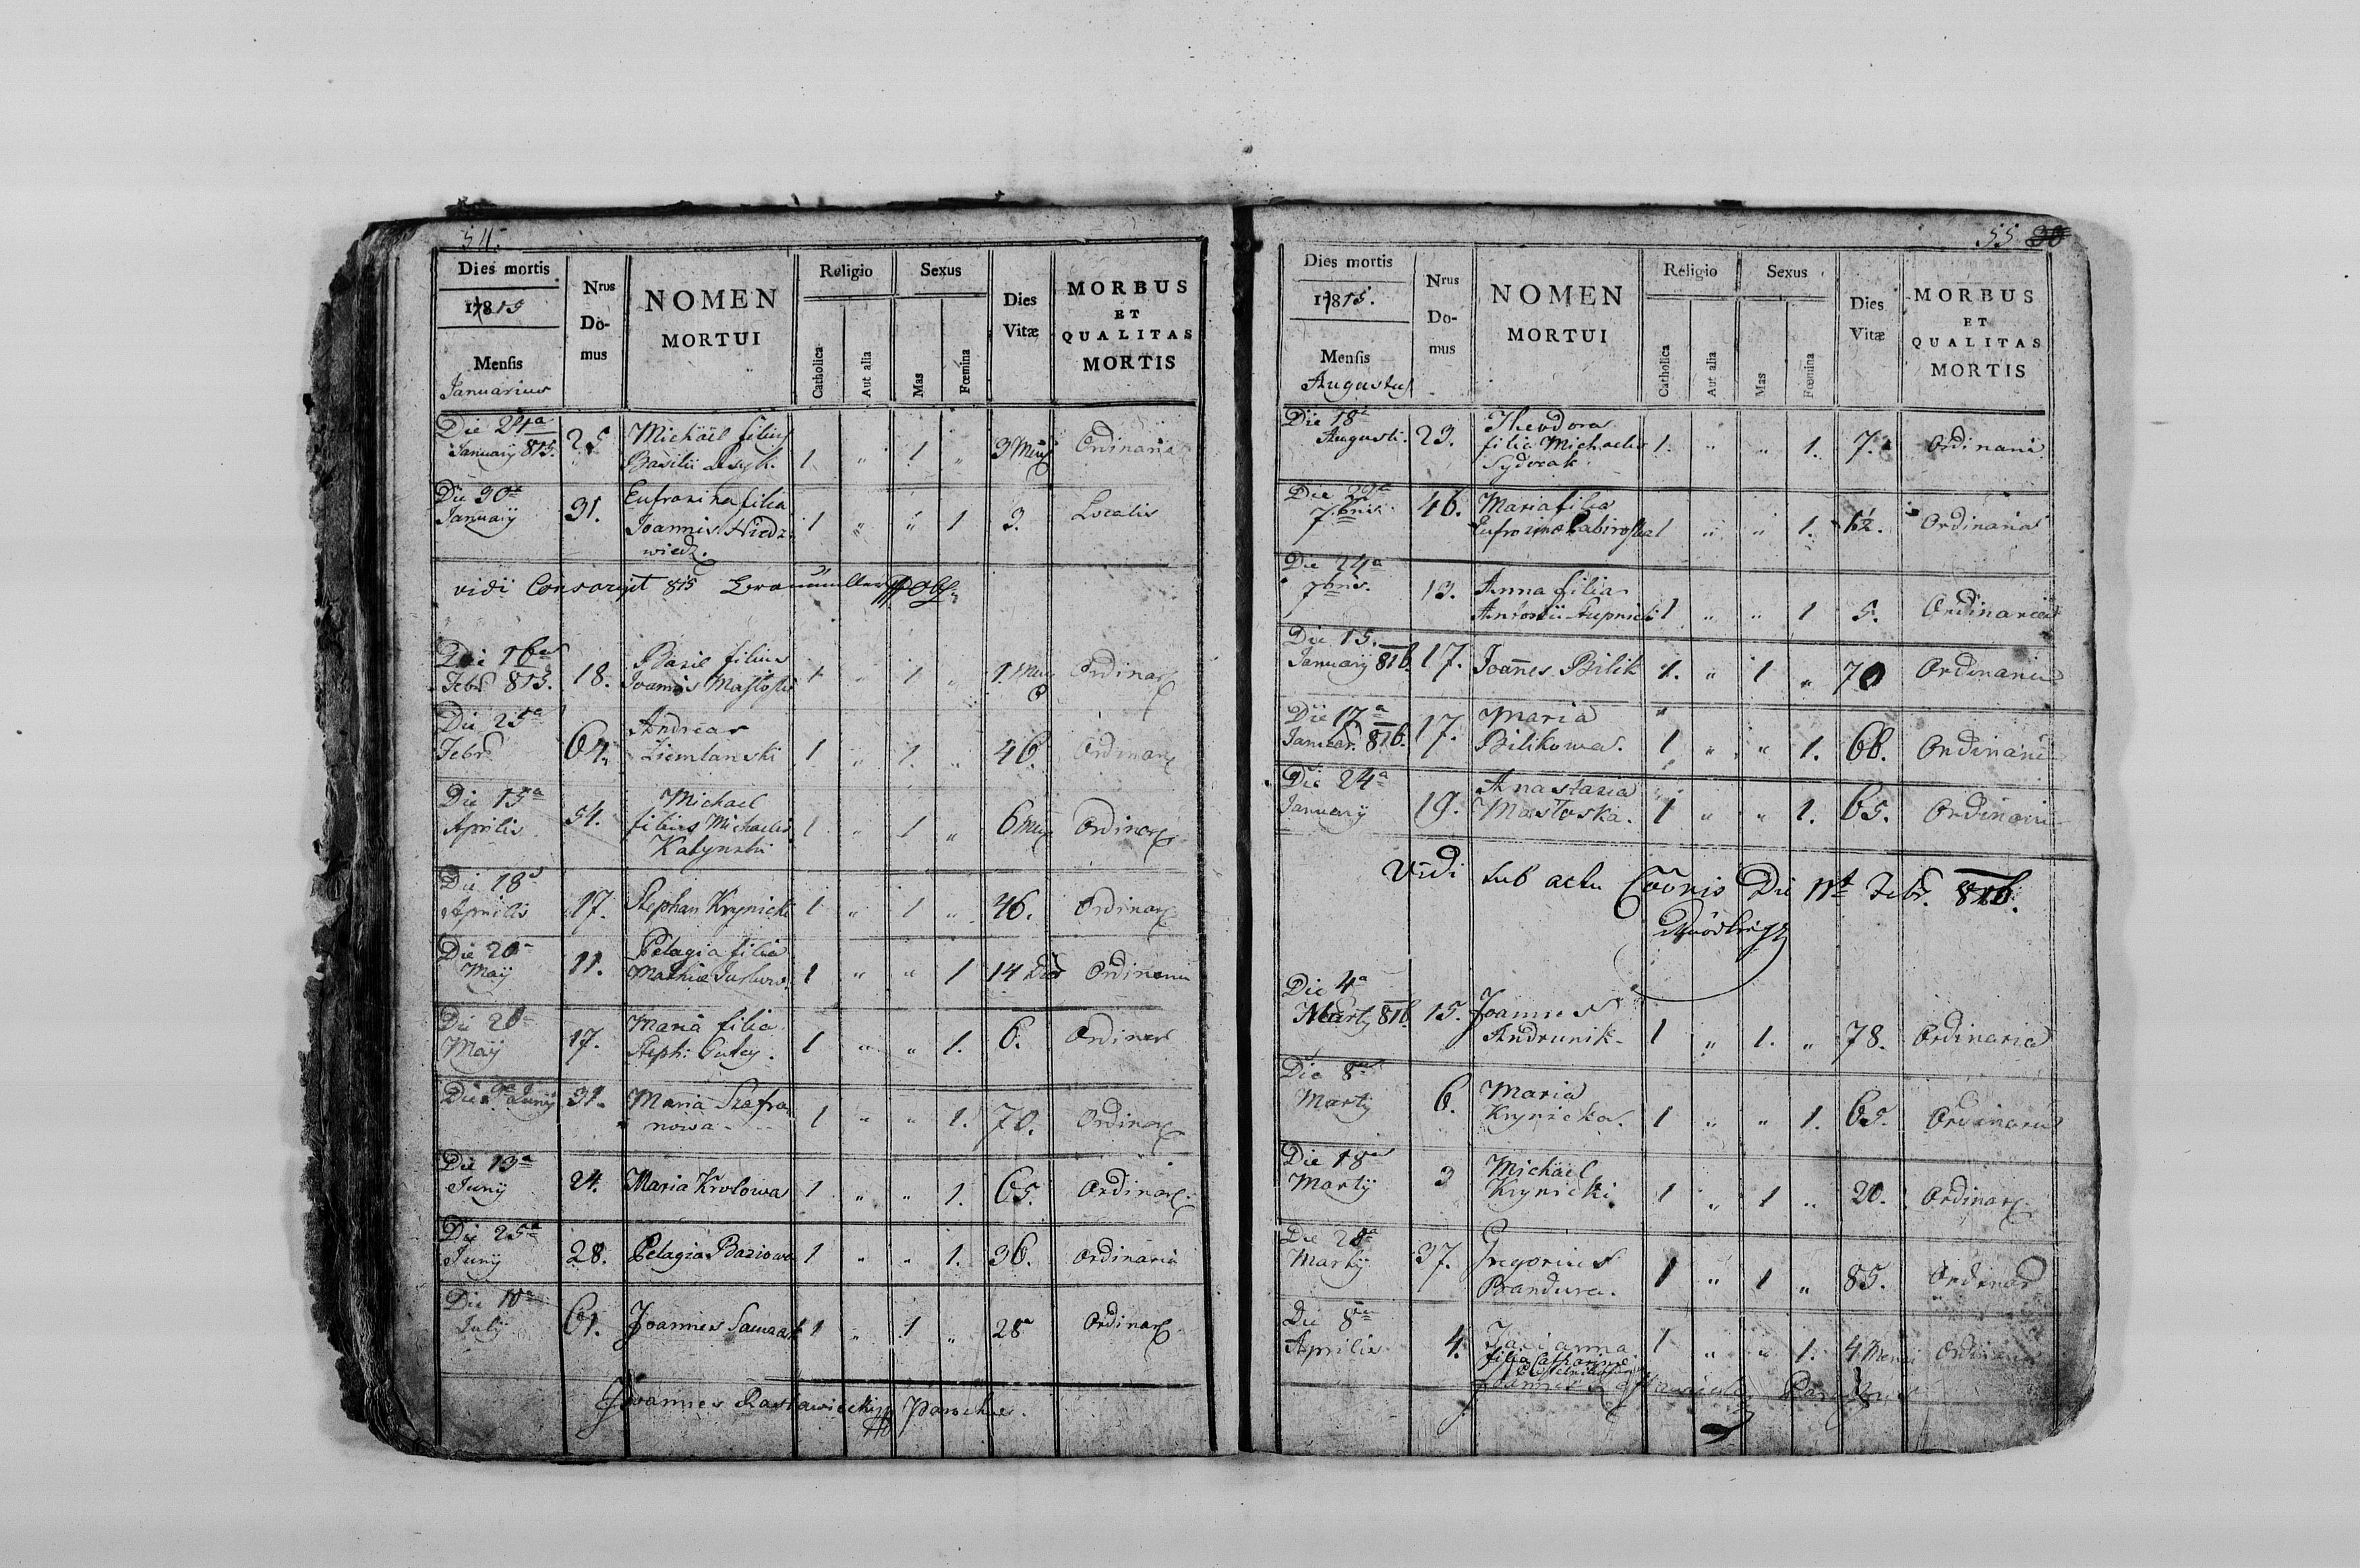 54.
Dies mortis
17815
Mensis
Januarius
Nrus
Do-
mus
NOMEN
MORTUI
Religio
Catholica
Aut alia
Sexus
Mas
Fœmina
Dies
Vitæ
MORBUS
ET
QUALITAS
MORTIS
Die 24a
Januarij 815.
25
Michäel filius
Basilii
1 „ 1 „
Ordinaria
Die 30a
Januarij
31.
Eufrosina filia
Joannis Niedz
wiedz.
1 „ „ 1
3.
Localis
vidi Conscript 815
Die 16a
Febr 815.
18.
Basil filius
Joannis
1 „ 1 „
Ordinar
Die 25a
Febr
64.
Andreas
Ziemlanski
1 „ 1. „
46
Ordinar
Die 15a
Aprilis
54.
Michael
filius Michaelis
Katynski
1 „ 1 „
Ordinar
Die 18a
Aprilis
17.
Stephan Krynicki
1 „ 1 „
46.
Ordinar
Die 20a
Maij
11.
Pelagia filia
Mathiæ
1 „ „ 1
14
Ordinaria
Die 20a
Maij
17.
Maria filia
Steph:
1 „ „ 1.
6.
Ordinar
Die 9a Junij
31.
Maria Szafra
nowa
1 „ „ 1.
70.
Ordinar
Die 13a
Junij
24.
Maria Krolowa
1 „ „ 1.
65.
Ordinar
Die 25a
Junij
28.
Pelagia Baziowa
1 „ „ 1.
36.
Ordinaria
Die 10a
July
61.
Joannes
1 „ 1 „
28
Ordinar
Joannes Rastawiecki Parochus.
55 30
Dies mortis
17815.
Mensis
Augustus
Nrus
Do-
mus
NOMEN
MORTUI
Religio
Catholica
Aut alia
Sexus
Mas
Fœmina
Dies
Vitæ
MORBUS
ET
QUALITAS
MORTIS
Die 18a
Augusti.
23.
Theodora
filia Michaelis
Sydorak
1. „ „ 1.
7.
Ordinaria
7bris
46.
Maria filia
1 „ „ 1.
Ordinaria
Die 24a
7bris.
13.
Anna filia
Antonii Stupnicki
1 „ „ 1
5.
Ordinaria
Die 15.
Januarij 816.
17.
Joannes Bilik
1. „ 1 „
70
Ordinaria
Die 17a
Januar. 816.
17.
Maria
Bilikowa.
1 „ „ 1.
68.
Ordinaria
Die 24a
Januarij
19.
Anastasia
Mastoska.
1 „ „ 1.
65.
Ordinaria
Vidi sub actu Coõnis Die Febr. 816.
Die 4a
Martij 816
15.
Joannes
Andrunik.
1 „ 1. „
78.
Ordinaria
Die 8a
Martij
6.
Maria
Krynicka.
1 „ „ 1.
65.
Ordinaria
Die 18a
Martij
3
Michäel
Krynicki
1 „ 1 „
20.
Ordinar
Die 20a
Martij
37.
Gregorius
Bandura.
1 „ 1 „
85.
Ordinar
Die 8a
Aprilis
4.
filia Catharinæ
1 „ „ 1.
4 Mensi
Ordinaria
Joannes Parochus